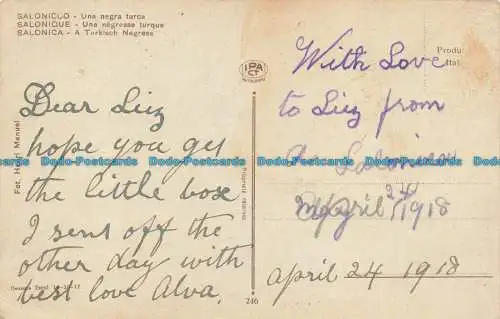 SALONICCO - Una negra turca
SALONIQUE - Une négresse turque
SALONICA - A Turkisch Negress
Dear Liz
hope you get
the little box
I sent off the
other day with
best love Alva.
Fot. Manuel
246
IPA
CT
Proprietà riservata
With Love
to Liz from
Salonica
April 24/1918
April 24 1918
Produ
Ital
Dodo-Postcards Dodo-Postcards Dodo-Postcards Dodo-Postcards Dodo-Postcards